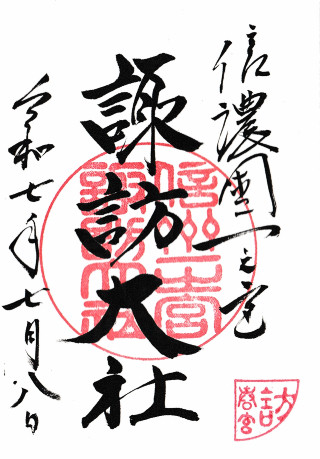 信濃國一之宮
諏訪大社
令和七年七月八日
信州一宮
諏訪大社